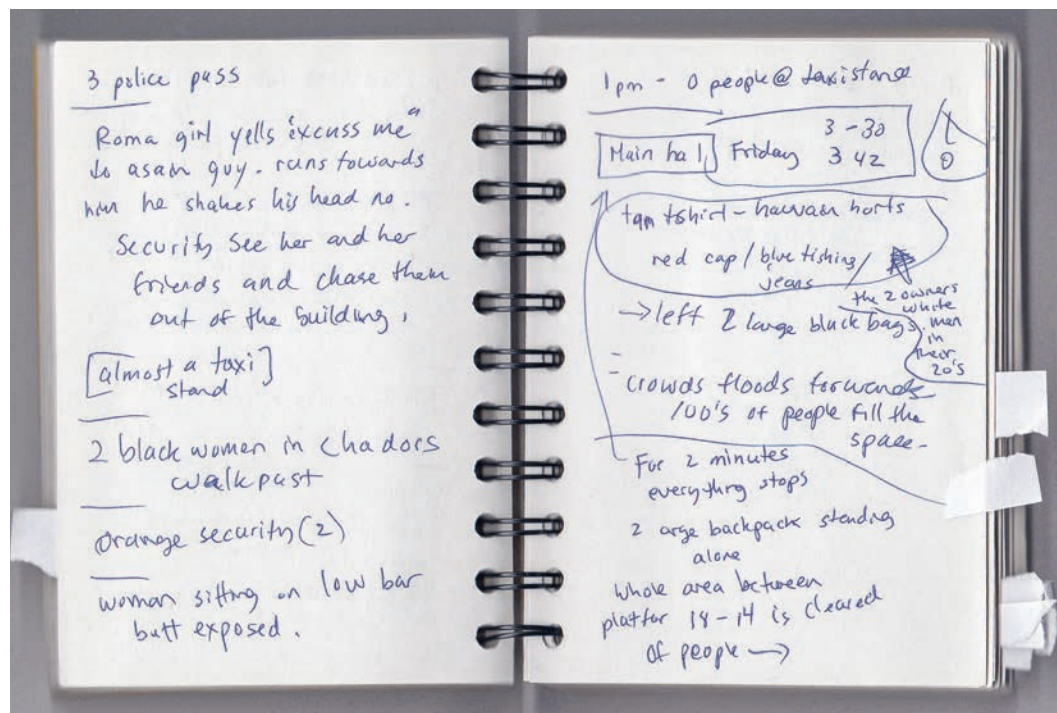 3 police pass
Roma girl yells "excuss me"
to asain guy. runs towards
him he shakes his head no.
Security see her and her
friends and chase them
out of the building.
[almost a taxi]
stand
2 black women in chadors
walk past
orange security (2)
woman sitting on low bar
butt exposed.
1 pm - 0 people @ taxistand
Main hal Friday 3 - 30
3 42
0
tan tshirt - hawain horts
red cap / blue fishing /
jeans
the 2 owners
white
men
in
their
20's
→ left 2 large black bags.
crowds floods forwards
100's of people fill the
space -
For 2 minutes
everything stops
2 arge backpack standing
alone
whole area between
platfor 18 - 14 is cleared
of people →